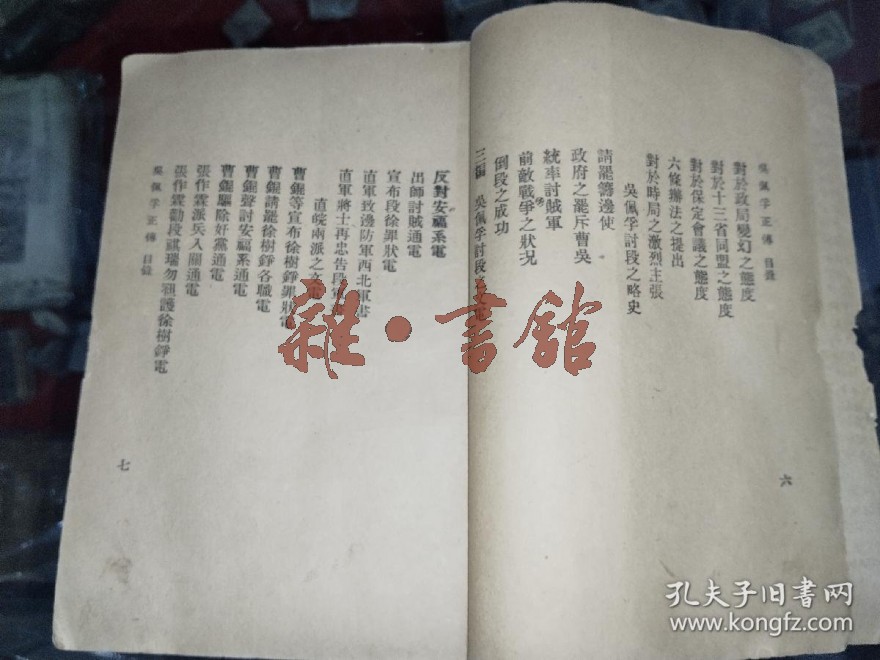 吳佩孚正傳 目錄
對於政局變幻之態度
對於十三省同盟之態度
對於保定會議之態度
六條辦法之提出
對於時局之激烈主張
吳佩孚討段之略史
請罷籌邊使
政府之罷斥曹吳
統率討賊軍
前敵戰爭之狀況
倒段之成功
三編 吳佩孚討段
六
反對安福系電
出師討賊通電
宣布段徐罪狀電
直軍致邊防軍西北軍書
直軍將士再忠告段
直皖兩派之
曹錕等宣布徐樹錚罪狀電
曹錕請罷徐樹錚各職電
曹錕聲討安福系通電
曹錕驅除奸黨通電
張作霖派兵入關通電
張作霖勸段祺瑞勿袒護徐樹錚電
吳佩孚正傳 目錄
七
雜·書館
孔夫子旧书网
www.kongfz.com